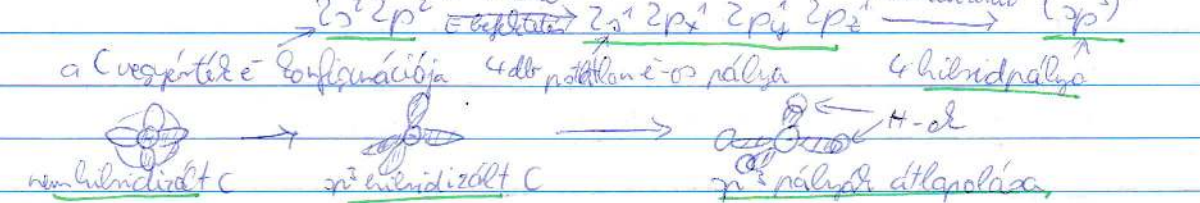 2s² 2p² E befektetés 2s¹ 2px¹ 2py¹ 2pz¹ (sp³)
a C vegyérték e⁻ konfigurációja 4 db párátlan e⁻-os pálya 4 hibridpálya
H-ek
nem hibridizált C sp³ hibridizált C sp³ pályák átlapolása,